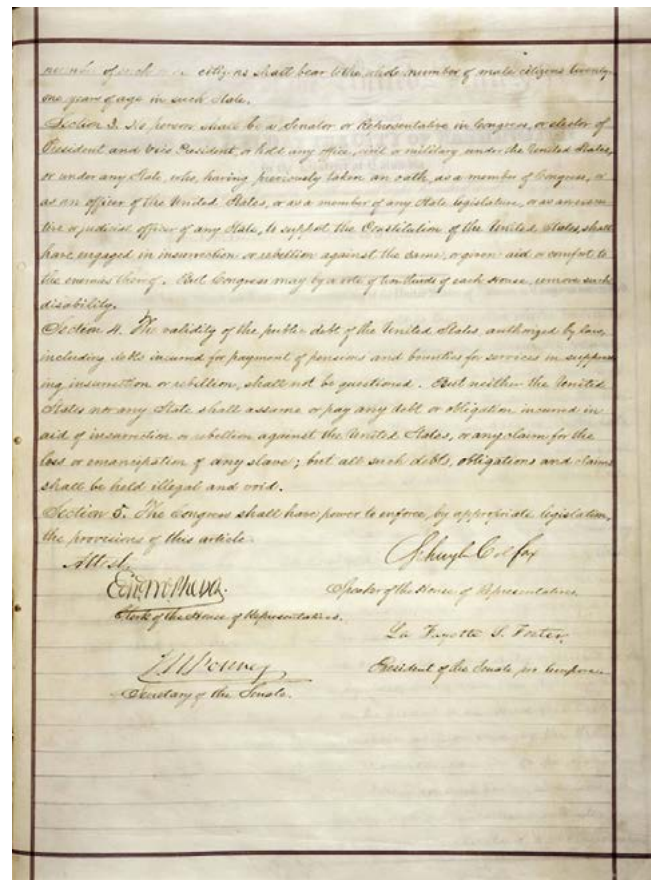 number of such male citizens shall bear to the whole number of male citizens twenty-
one years of age in such State.
Section 3. No person shall be a Senator or Representative in Congress, or elector of
President and Vice President, or hold any office, civil or military, under the United States,
or under any State, who, having previously taken an oath, as a member of Congress, or
as an officer of the United States, or as a member of any State legislature, or as an execu-
tive or judicial officer of any State, to support the Constitution of the United States, shall
have engaged in insurrection or rebellion against the same, or given aid or comfort to
the enemies thereof. But Congress may by a vote of two-thirds of each House, remove such
disability.
Section 4. The validity of the public debt of the United States, authorized by law,
including debts incurred for payment of pensions and bounties for services in suppress-
ing insurrection or rebellion, shall not be questioned. But neither the United
States nor any State shall assume or pay any debt or obligation incurred in
aid of insurrection or rebellion against the United States, or any claim for the
loss or emancipation of any slave; but all such debts, obligations and claims
shall be held illegal and void.
Section 5. The Congress shall have power to enforce, by appropriate legislation,
the provisions of this article.
Attest.
Schuyler Colfax
Edwd McPherson.
Speaker of the House of Representatives.
Clerk of the House of Representatives.
La Fayette S. Foster
J. W. Forney
President of the Senate pro tempore.
Secretary of the Senate.